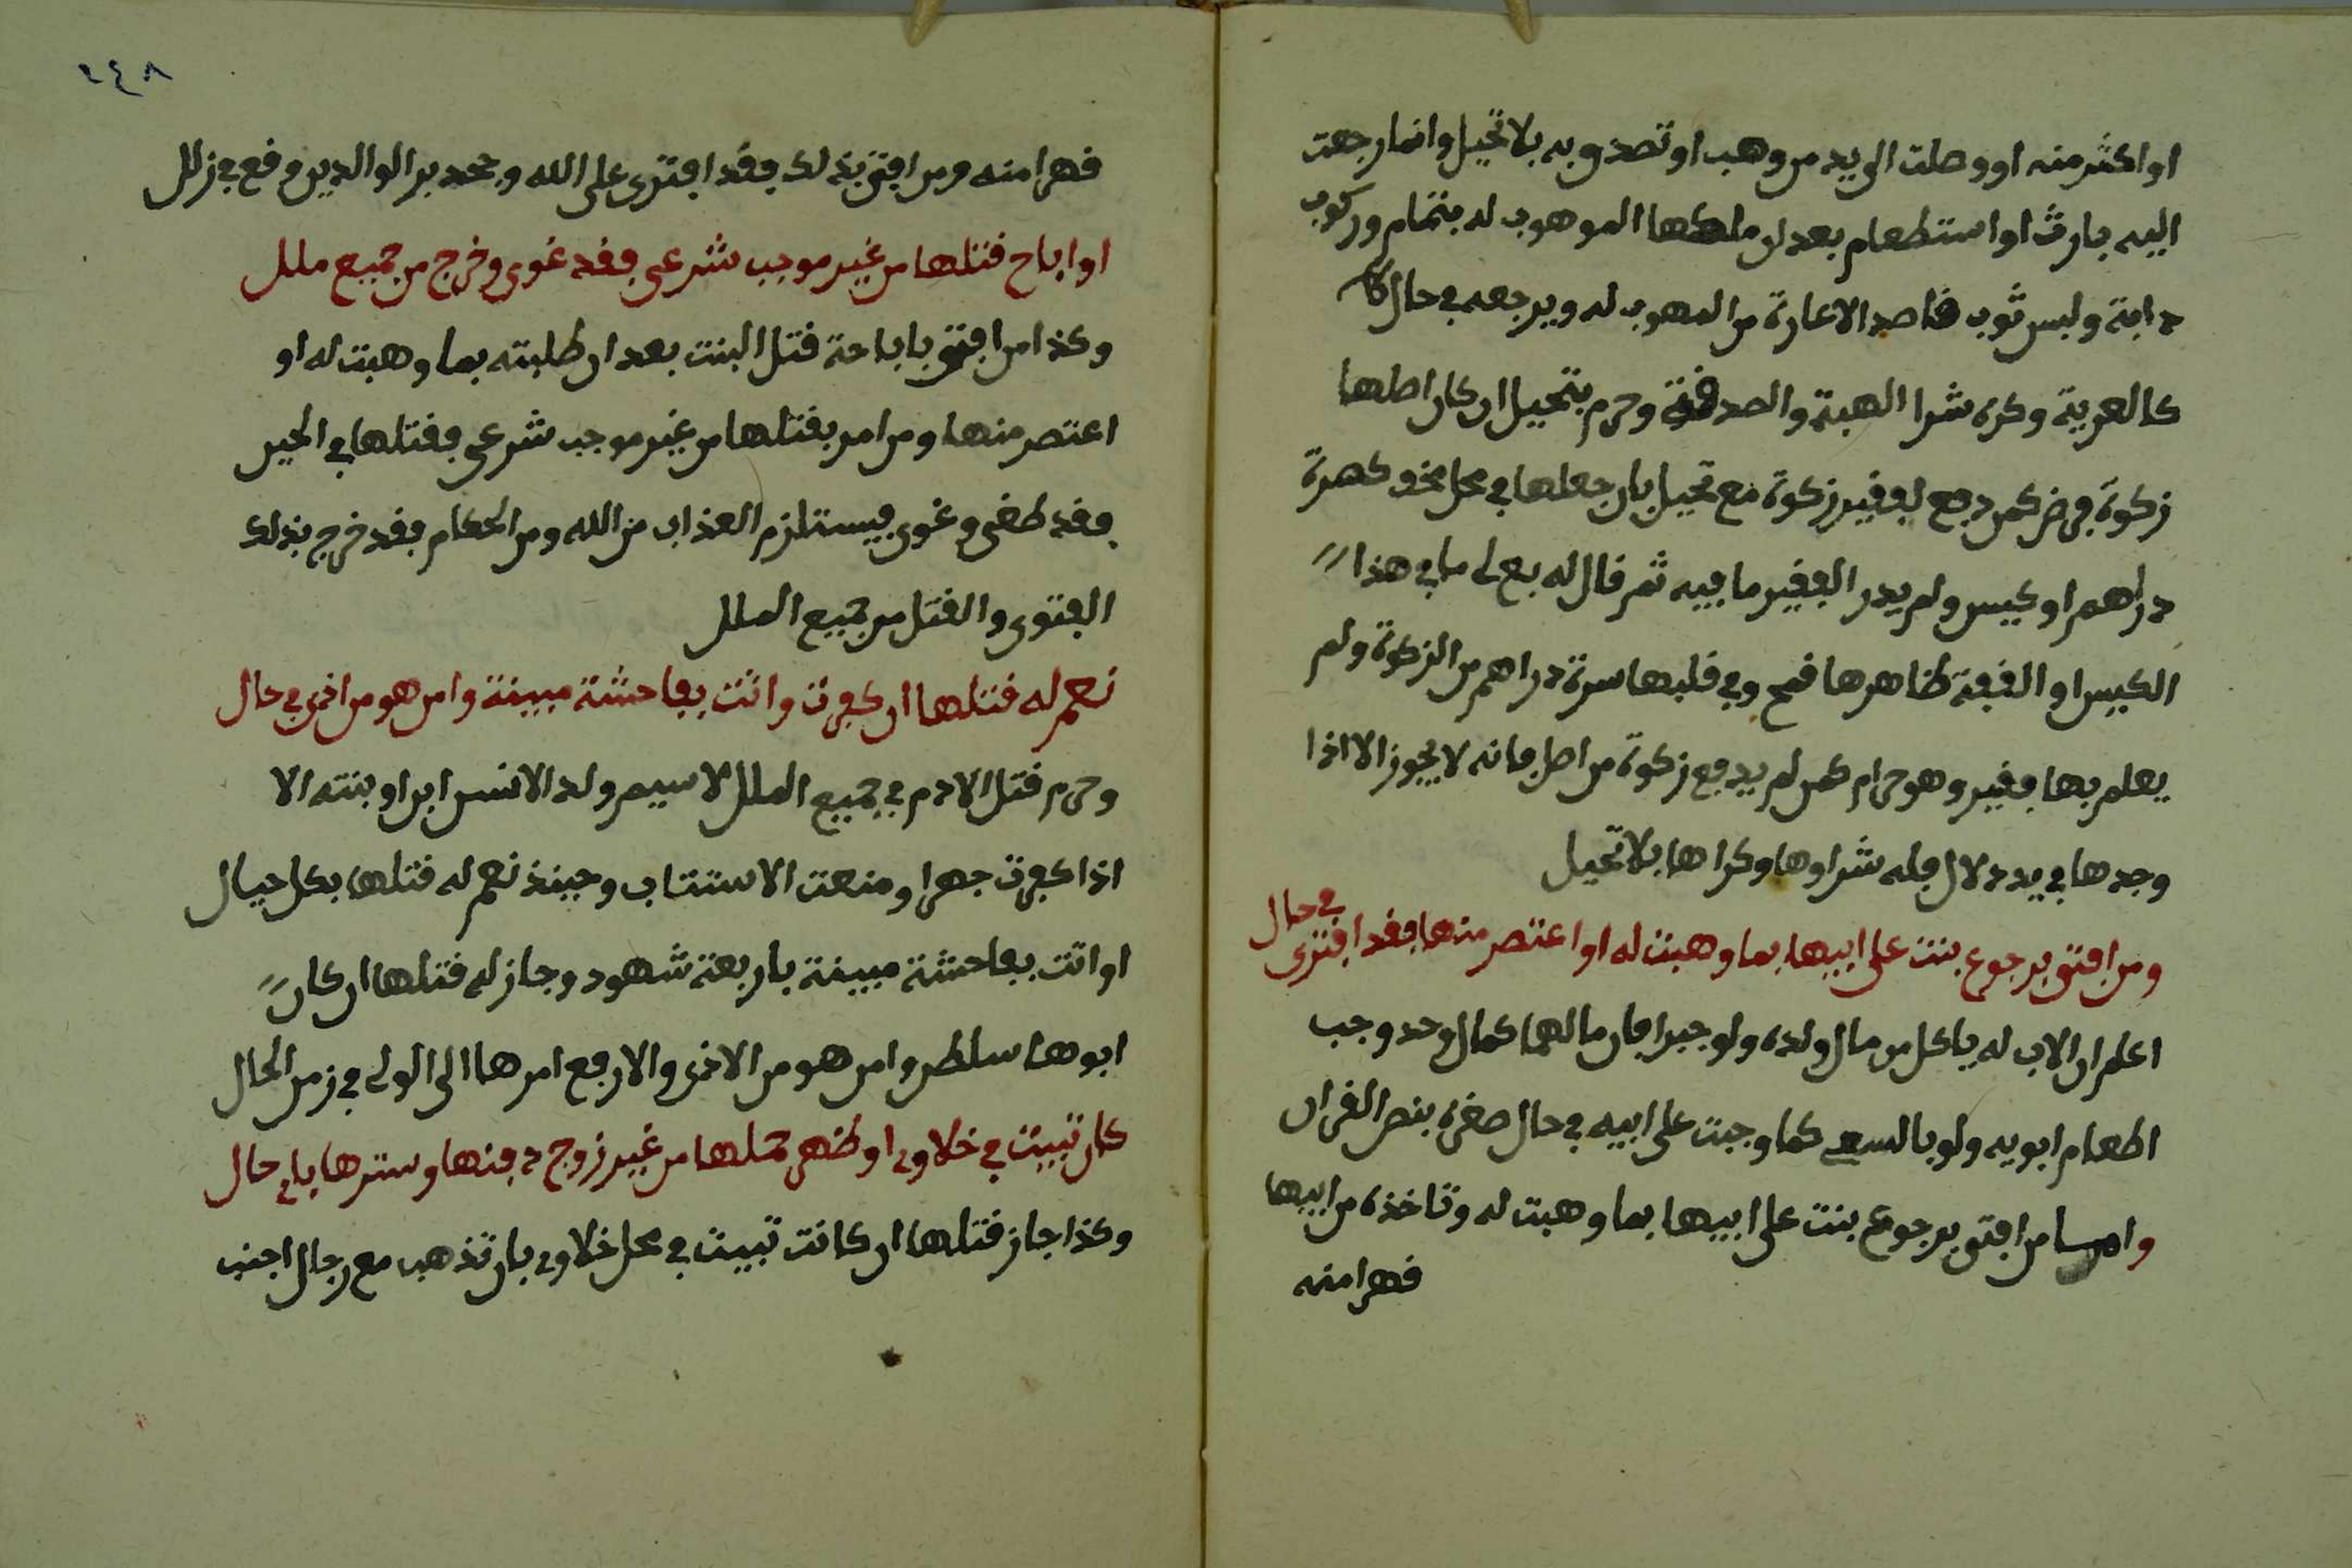 او اكثر منه او وصلت الى يد من وهب او تصدق به بلا تحيل وانما رجعت
اليه بارث او استطعام بعد ان ملكها الموهوب له بتمام وركوب
دابة ولبس ثوب قاصد الاعارة من الموهوب له ويرجعه في حال كا
كالعرية وكره شرا الهبة والصدقة وحرم بتحيل ان كان اصلها
زكوة فرض كمن دفع لفقير زكوة مع تحيل بان جعلها في محل مخفو كصرة
دراهم او كيس ولم يدر الفقير ما فيه ثم قال له بع لي ما في هذا
الكيس او القفة ظاهرها قمح وفي قلبها سرة دراهم من الزكوة ولم
يعلم بها فقير وهو حرام كمن لم يدفع زكوة من اصل فانه لا يجوز الا اذا
وجدها في يد دلال فله شراوها وكراها بلا تحيل
ومن افتى برجوع بنت على ابيها بما وهبت له او اعتصر منها فقد افترى في حال
اعلم ان الاب له ياكل من مال ولده ولو جبرا فان مالهما كمال وحد وجب
اطعام ابويه ولو بالسعي كما وجبت على ابيه في حال صغره بنص القران
وامــا من افتى برجوع بنت على ابيها بما وهبت له وتاخذه من ابيها
قهرا منه
٢٤٨
قهرا منه ومن افتى بذلك فقد افترى على الله وجحد بر الوالدين وقع في زلل
او اباح قتلها من غير موجب شرعي فقد غوى وخرج من جميع ملل
وكذا من افتى باباحة قتل البنت بعد ان طلبته بما وهبت له او
اعتصر منها ومن امر بقتلها من غير موجب شرعي فقتلها في الحين
فقد طغى وغوى فيستلزم العذاب من الله ومن الحكام فقد خرج بذلك
الفتوى والقتل من جميع الملل
نعم له قتلها ان كفرت واتت بفاحشة مبينة وامن هو من اخرى في حال
وحرم قتل الادم في جميع الملل لا سيم ولد الانس ابن او بنته الا
اذا كفرت جهرا ومنعت الاستتاب وحينذ نعم له قتلها بكل حيال
او اتت بفاحشة مبينة باربعة شهود وجاز له قتلها ان كان
ابوها سلطن وامن هو من الاخرى والا رفع امرها الى الولي في زمن الحال
كان تبيت في خلاوي او ظهر حملها من غير زوج دفنها وسترها باي حال
وكذا جاز قتلها ان كانت تبيت في محل خلاوي بان تذهب مع رجال اجنب